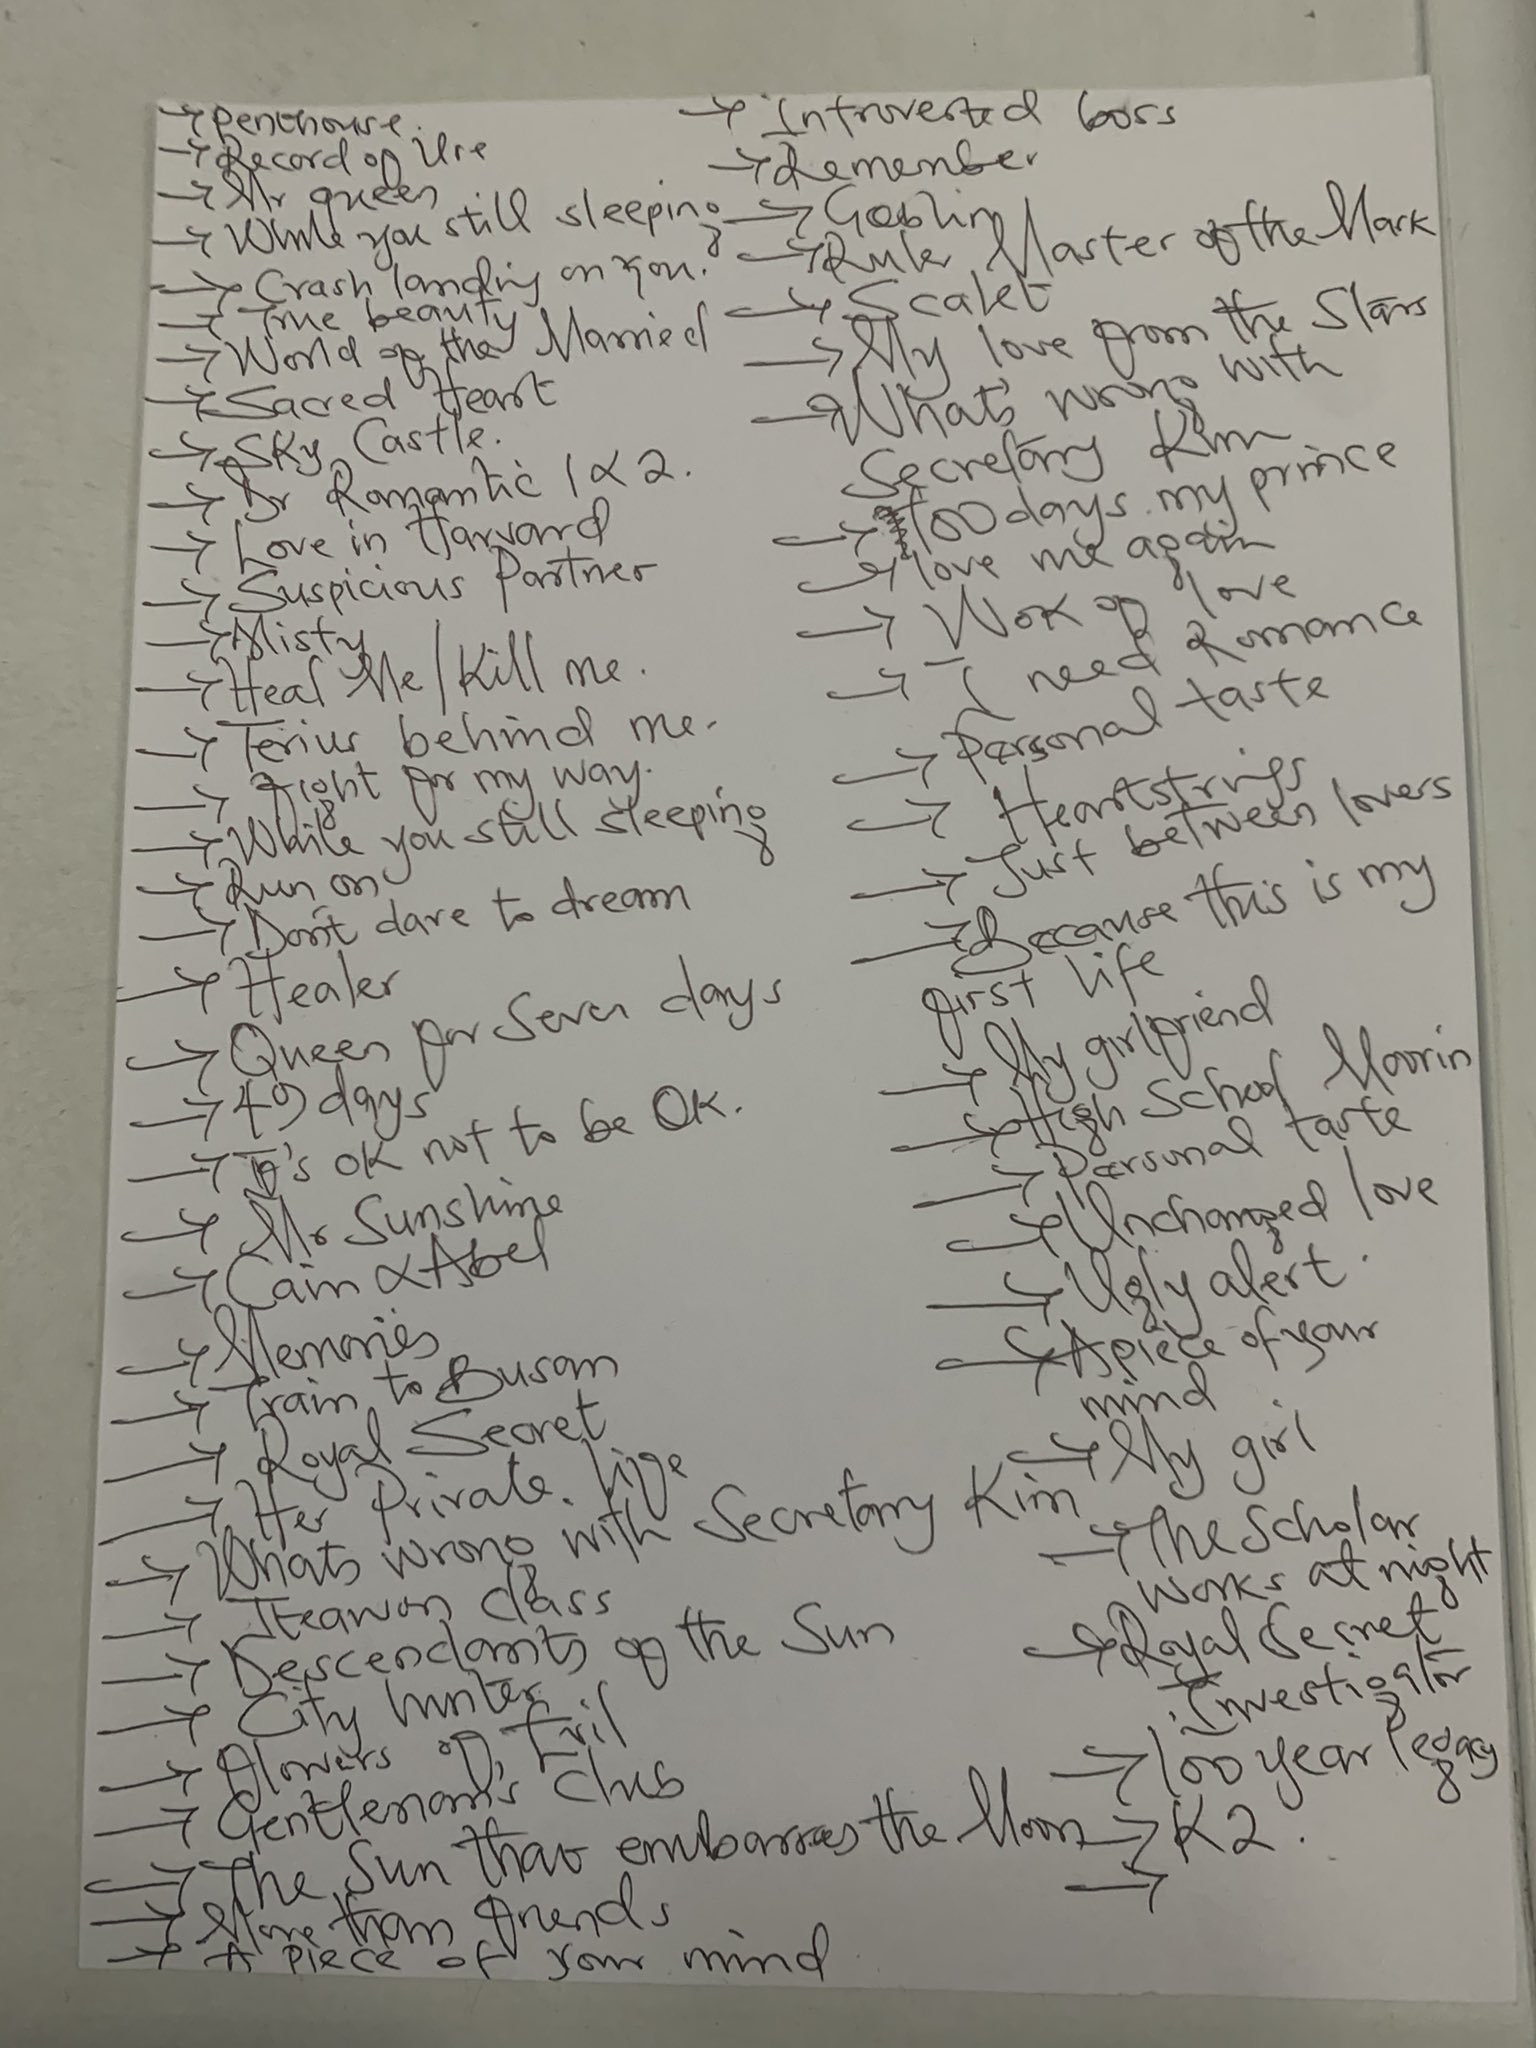 → Penthouse.
→ Record of Ure
→ Mr queen
→ While you still sleeping
→ Crash landing on you.
→ True beauty
→ World of the Married
→ Sacred Heart
→ Sky Castle.
→ Dr Romantic 1 & 2.
→ Love in Harvard
→ Suspicious Partner
→ Misty
→ Heal Me/Kill me.
→ Terius behind me.
→ Fight for my way.
→ While you still sleeping
→ Run on
→ Don't dare to dream
→ Healer
→ Queen for Seven days
→ 49 days
→ It's OK not to be OK.
→ Mr Sunshine
→ Cain & Abel
→ Memories
→ Train to Busan
→ Royal Secret
→ Her Private life
→ Whats wrong with Secretary Kim
→ Iteawon class
→ Descendants of the Sun
→ City hunter
→ Flowers of Evil
→ Gentleman's Club
→ The Sun that embarraes the Moon
→ More than friends
→ A piece of your mind
→ Introverted boss
→ Remember
→ Goblin
→ Ruler Master of the Mark
→ Scalet
→ My love from the Stars
→ What's wrong with
Secretary Kim
→ 100 days my prince
→ love me again
→ Wok of love
→ I need Romance
→ Personal taste
→ Heartstrings
→ Just between lovers
→ Because this is my
first life
→ My girlfriend
→ High School Moorin
→ Personal taste
→ Unchanged love
→ Ugly alert.
→ A piece of your
mind
→ My girl
→ The Scholar
works at night
→ Royal Secret
Investigator
→ 100 year legacy
→ K2.
→